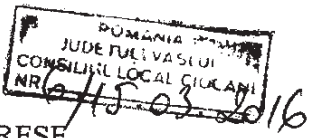 ROMÂNIA
JUDEŢUL VASLUI
CONSILIUL LOCAL CIOCANI
NR 6/15.03.2016
RESE